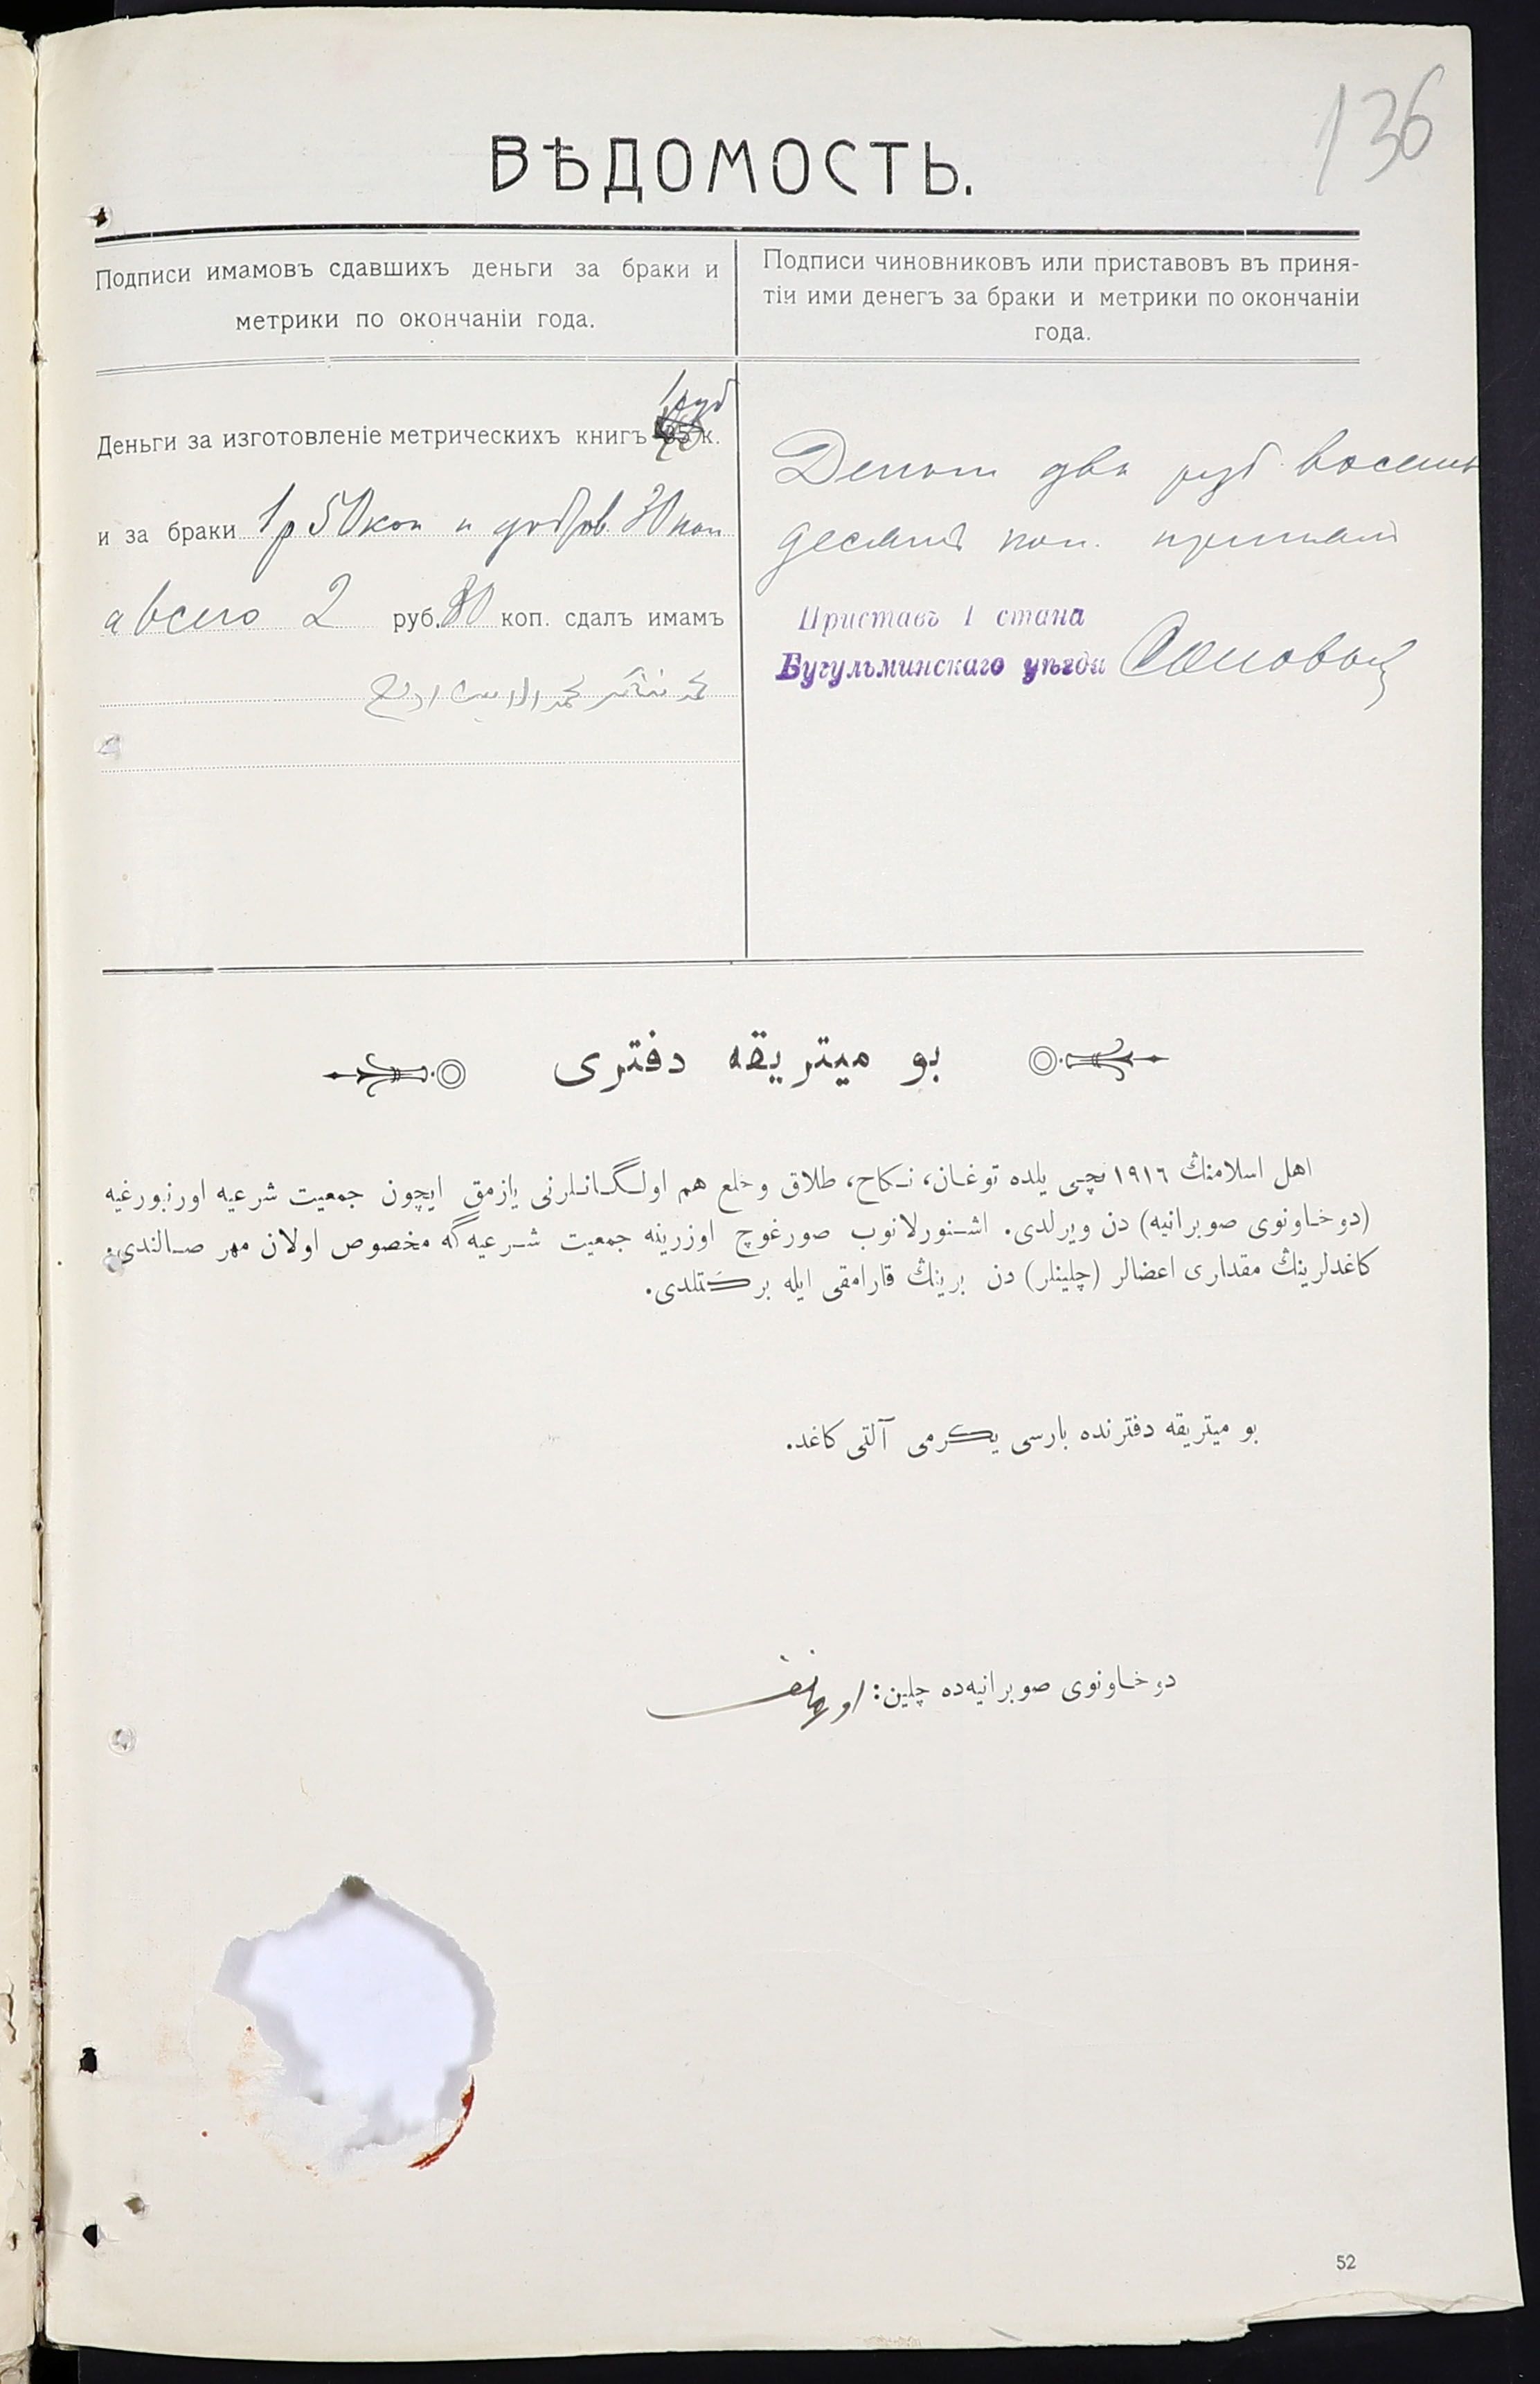 136
ВѢДОМОСТЬ.
Подписи имамовъ сдавшихъ деньги за браки и
метрики по окончаніи года.
Подписи чиновниковъ или приставовъ въ приня-
тіи ими денегъ за браки и метрики по окончаніи
года.
1 руб
Деньги за изготовленіе метрическихъ книгъ к.
и за браки 1 р 50 коп и добров. 30 коп
а всего 2 руб. 80 коп. сдалъ имамъ
Деньги два руб восемь
десятъ коп. принялъ
Приставъ 1 стана
Бугульминскаго уѣзда
بو ميتريقه دفترى
اهل اسلامنڭ ١٩١٦ نچى يلده توغان، نكاح، طلاق وخلع هم اولگانلرنى يازمق ايچون جمعيت شرعيه اورنبورغيه
(دوخاونوى صوبرانيه) دن ويرلدى. اشنورلانوب صورغوچ اوزرينه جمعيت شرعيه‌گه مخصوص اولان مهر صالندى.
كاغدلرينڭ مقدارى اعضالر (چلينلر) دن برينڭ قارامقى ايله بركتلدى.
بو ميتريقه دفترنده بارسى يكرمى آلتى كاغد.
دوخاونوى صوبرانيه‌ده چلين:
52